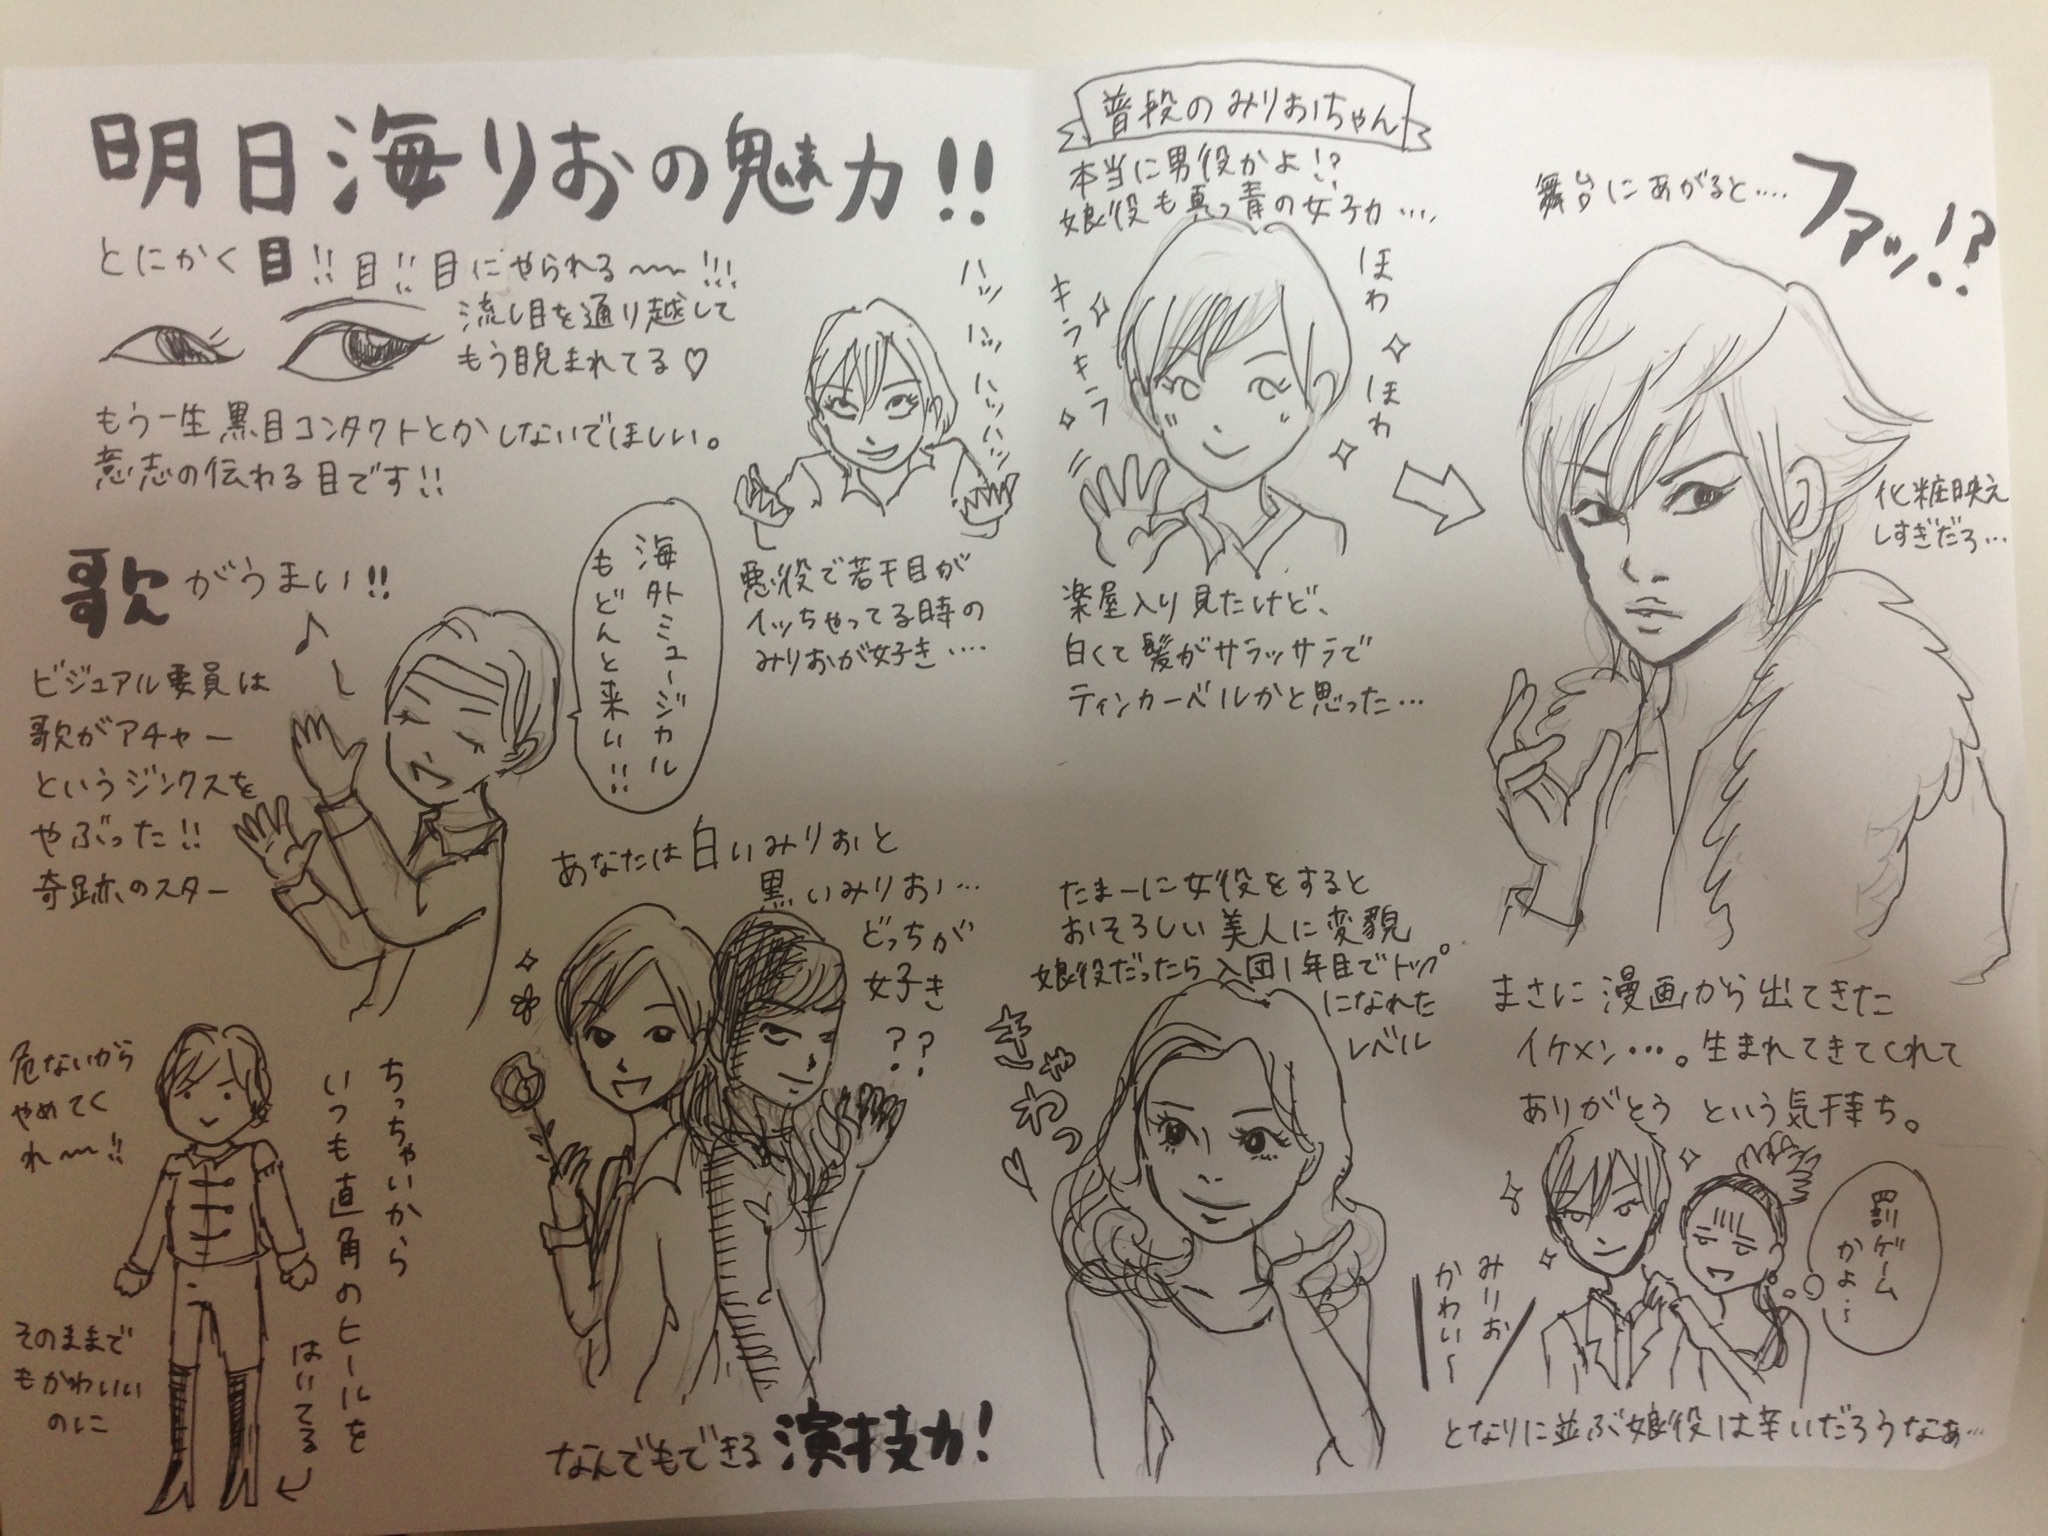 明日海りおの魅力!!
とにかく目!!目!!目にやられる〜〜!!!
流し目を通り越して
もう睨まれてる♡
もう一生黒目コンタクトとかしないでほしい。
意志の伝わる目です!!
ハッ
ハッ
ハッ
ハッ
ハッ
悪役で若干目が
イッちゃってる時の
みりおが好き‥‥
歌がうまい!!
ビジュアル要員は
歌がアチャー
というジンクスを
やぶった!!
奇跡のスター
海外ミュージカル
もどんと来い!!
あなたは白いみりおと
黒いみりお…
どっちが
好き
??
なんでもできる演技力!
危ないから
やめてく
れ〜〜!!
ちっちゃいから
いつも直角のヒールを
はいてる
そのままで
もかわいい
のに
普段のみりおちゃん
本当に男役かよ!?
娘役も真っ青の女子力‥‥
キラキラ
ほわ
ほわ
楽屋入り見たけど、
白くて髪がサラッサラで
ティンカーベルかと思った…
舞台にあがると‥‥
ファッ!?
化粧映え
しすぎだろ…
まさに漫画から出てきた
イケメン…。生まれてきてくれて
ありがとう という気持ち。
たまーに女役をすると
おそろしい美人に変貌
娘役だったら入団1年目でトップ
になれた
レベル
きゃわっ♡
みりお
かわい〜
罰ゲーム
かよ…
となりに並ぶ娘役は辛いだろうなぁ…